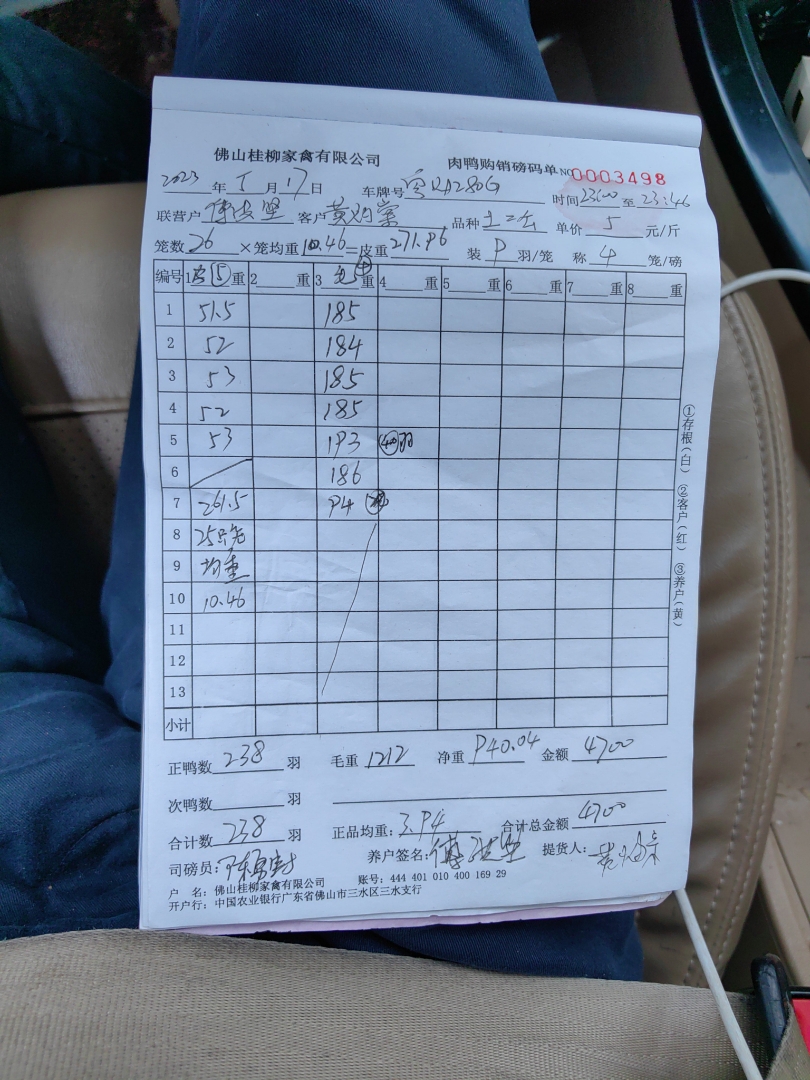 佛山桂柳家禽有限公司 肉鸭购销磅码单 NO 0003498
2023年5月17日 车牌号 时间23:00至23:46
联营户 客户 品种 单价 5 元/斤
笼数 26 ×笼均重 10.46 =皮重 271.96 装 9 羽/笼 称 4 笼/磅
编号 1 空⑤重 2 重 3 毛④重 4 重 5 重 6 重 7 重 8 重
1 51.5 185
2 52 184
3 53 185
4 52 185
5 53 193
6 186
7 261.5 94
8 25只笼
9 均重
10 10.46
11
12
13
小计
正鸭数 238 羽 毛重 1212 净重 940.04 金额 4700
次鸭数 羽
合计数 238 羽 正品均重: 3.94 合计总金额 4700
司磅员: 养户签名: 提货人:
户 名: 佛山桂柳家禽有限公司 账号: 444 401 010 400 169 29
开户行: 中国农业银行广东省佛山市三水区三水支行
①存根(白) ②客户(红) ③养户(黄)